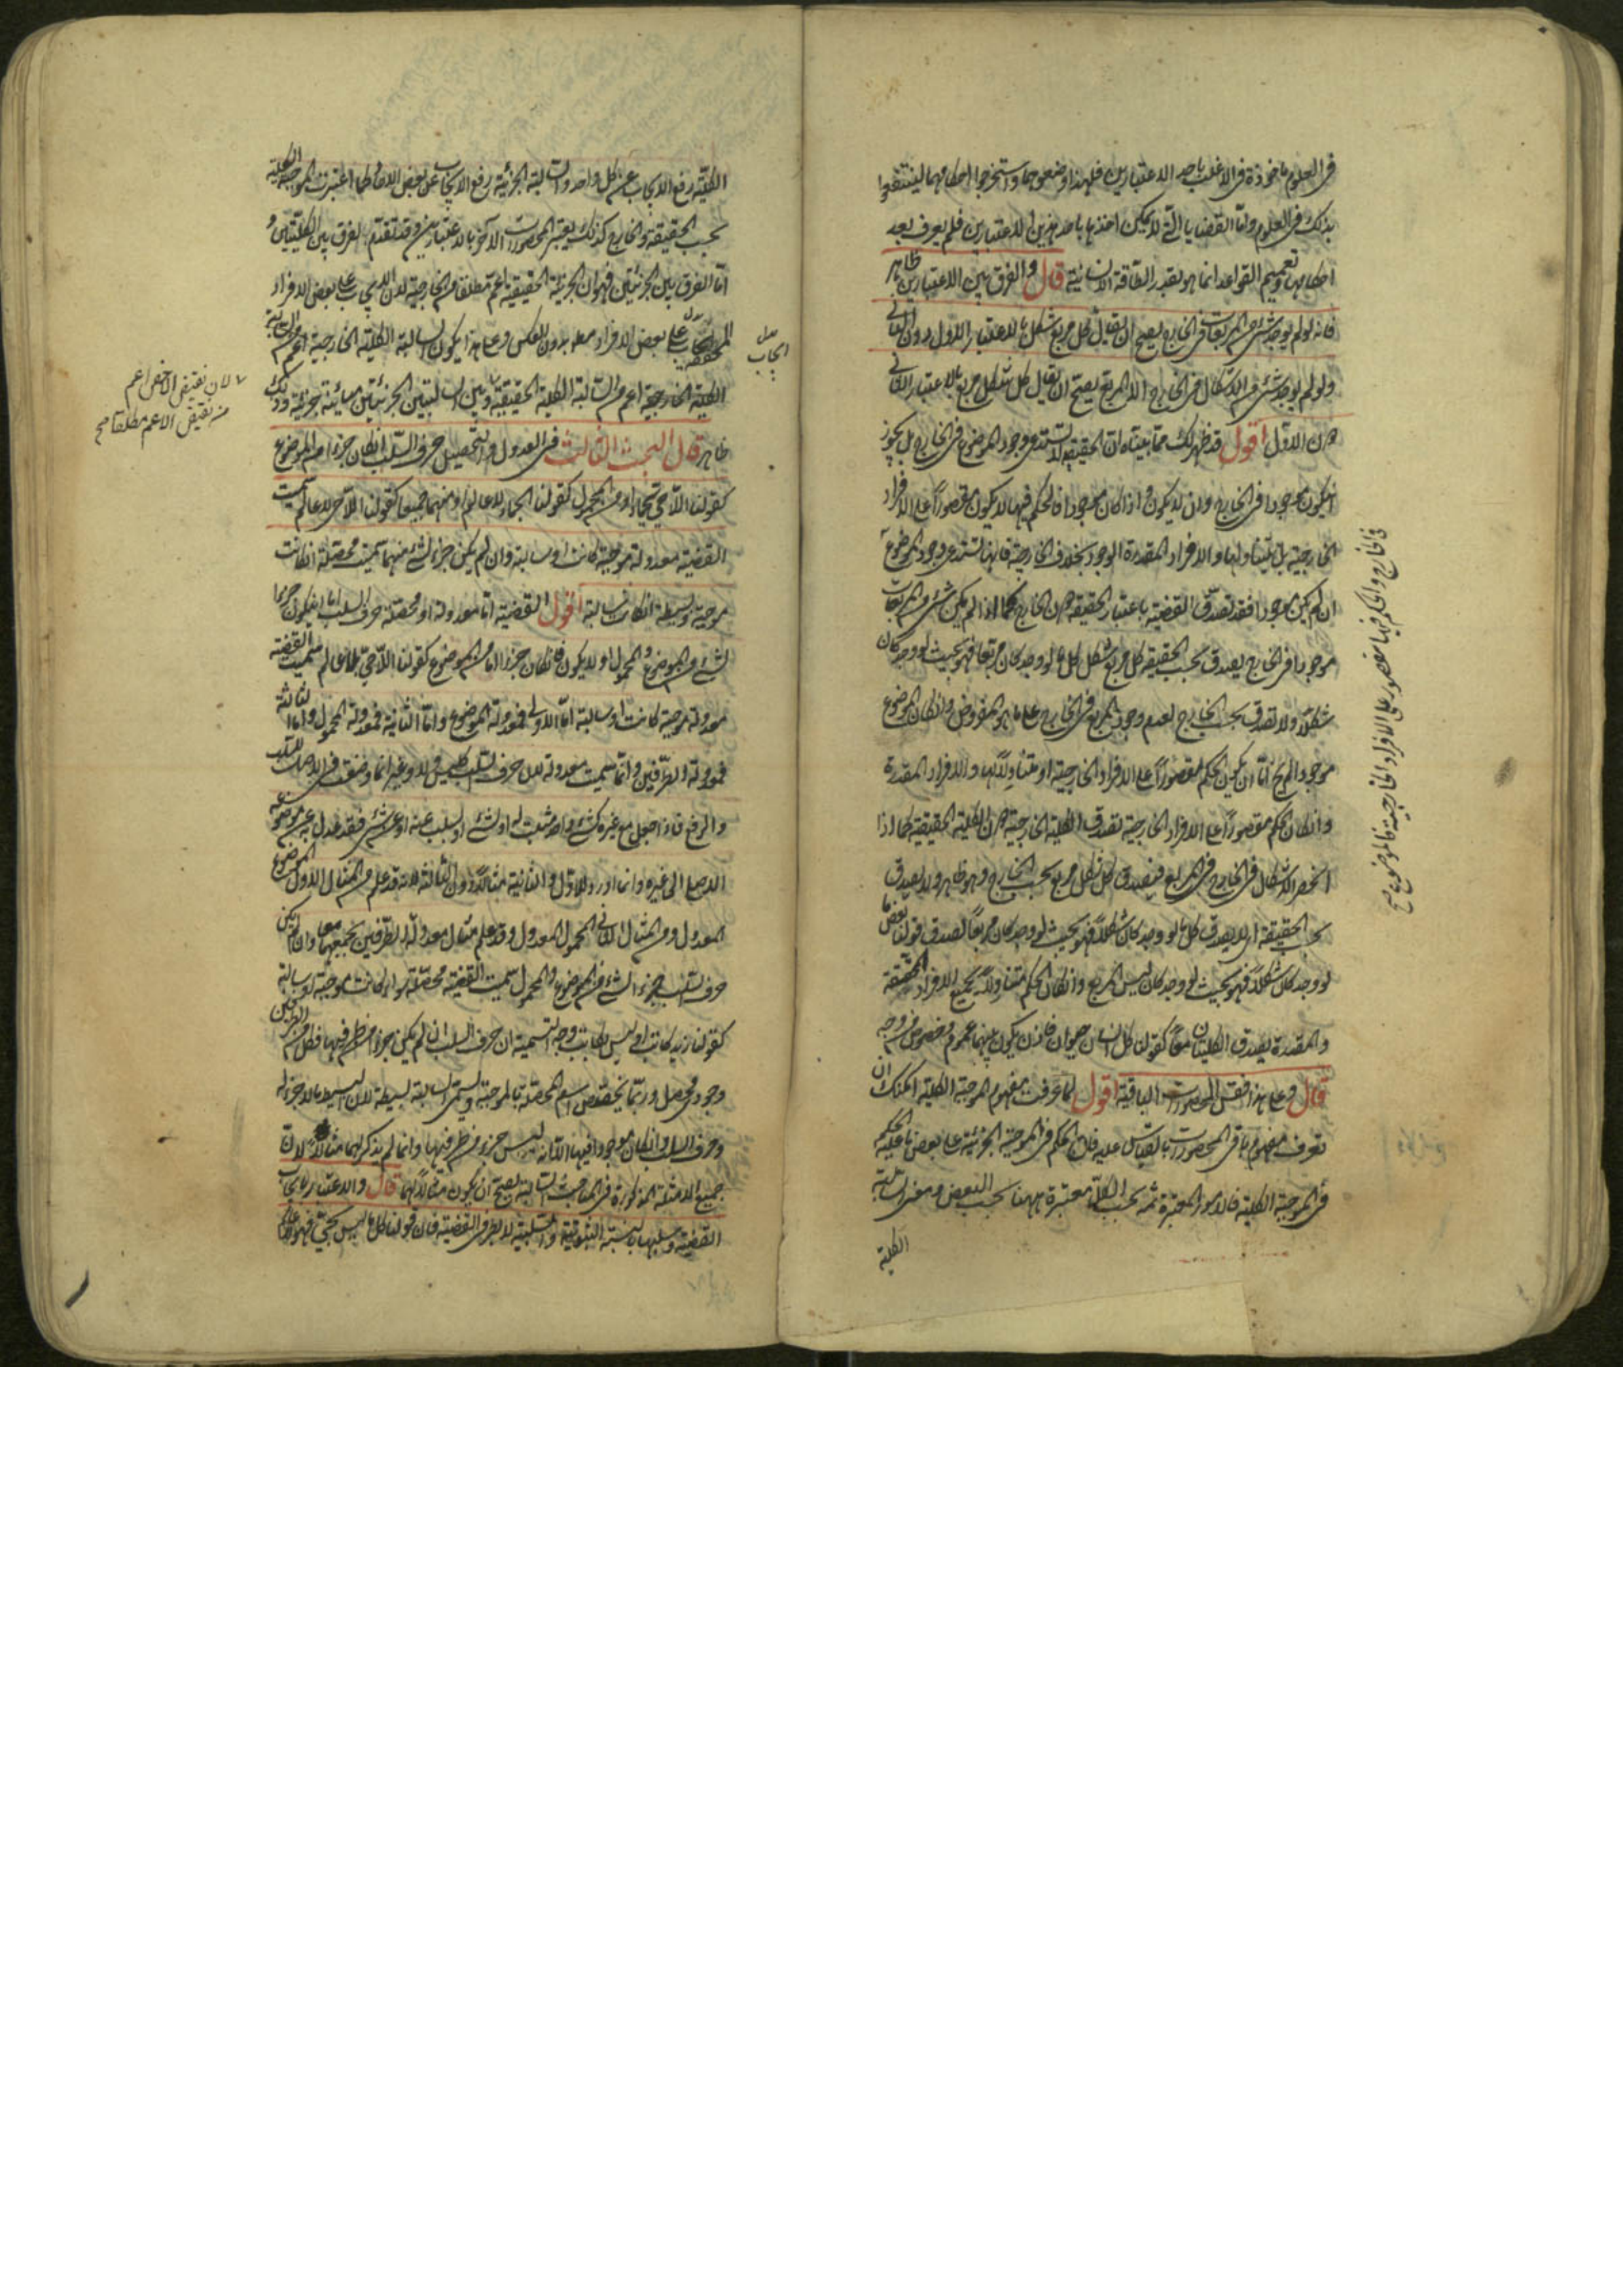 فى العلوم مأخوذة فى الاغلب باحد الاعتبارين فلهذا وضعوهما واستخرجوا احكامهما لينتفعوا
بذلك فى العلوم واما القضايا التى لا يمكن اخذها باحد هذين الاعتبارين فلم يعرف بعد
احكامها وتعميم القواعد انما هو بقدر الطاقة الانسانية قال والفرق بين الاعتبارين ظاهر
فانه لو لم يوجد شئ من المربعات فى الخارج يصح ان يقال كل مربع شكل بالاعتبار الاول دون الثانى
ولو لم يوجد شئ من الاشكال فى الخارج الا المربع يصح ان يقال كل شكل مربع بالاعتبار الثانى
دون الاول اقول قد ظهر لك مما بيناه ان الحقيقية لا تستدعى وجود الموضوع فى الخارج بل يجوز
ان يكون موجودا فى الخارج وان لا يكون واذا كان موجودا فالحكم فيها لا يكون مقصورا على الافراد
الخارجية بل يتناولها والافراد المقدرة الوجود بخلاف الخارجية فانها تستدعى وجود الموضوع
ان لم يكن موجودا فقد تصدق القضية باعتبار الحقيقة دون الخارج كما اذا لم يكن شئ من المربعات
موجودا فى الخارج يصدق بحسب الحقيقة كل مربع شكل اى كل ما لو وجد كان مربعا فهو بحيث لو وجد كان
شكلا ولا تصدق بحسب الخارج لعدم وجود المربع فى الخارج على ما هو المفروض وان كان الموضوع
موجودا لم يخ اما ان يكون الحكم مقصورا على الافراد الخارجية او متناولا لها وللافراد المقدرة
وان كان الحكم مقصورا على الافراد الخارجية تصدق الكلية الخارجية دون الكلية الحقيقية كما اذا
انحصر الاشكال فى الخارج فى المربع فيصدق كل شكل مربع بحسب الخارج وهو ظاهر ولا يصدق
بحسب الحقيقة اى لا يصدق كل ما لو وجد كان شكلا فهو بحيث لو وجد كان مربعا لصدق قولنا بعض ما
لو وجد كان شكلا فهو بحيث لو وجد كان ليس المربع وان كان الحكم متناولا لجميع الافراد المحققة
والمقدرة يصدق الكليتان معا كقولنا كل انسان حيوان فاذن يكون بينهما عموم وخصوص من وجه
قال وعلى هذا فقس المحصورات الباقية اقول لما عرفت مفهوم الموجبة الكلية امكنك ان
تعرف مفهوم باقى المحصورات بالقياس عليه فان الحكم فى الموجبة الجزئية على بعض ما عليه الحكم
فى الموجبة الكلية فالامور المعتبرة ثمه بحسب الكل معتبرة ههنا بحسب البعض ومعنى السالبة
الكلية
فى الخارج والحكم فيها مقصور على الافراد الخارجية فالموضوع صح
الكلية رفع الايجاب عن كل واحد والسالبة الجزئية رفع الايجاب عن بعض الاحاد وكما اعتبرت الموجبة الكلية
بحسب الحقيقة والخارج كذلك يعتبر المحصورات الآخر بالاعتبارين وقد تقدم الفرق بين الكليتين و
اما الفرق بين الجزئيتين فهو ان الجزئية الحقيقية اعم مطلقا من الخارجية لان الايجاب على بعض الافراد
على بعض الافراد مطلقا بدون العكس وعلى هذا يكون السالبة الكلية الخارجية اعم من السالبة
الكلية الخارجية اعم من السالبة الكلية الحقيقية وبين السالبتين الجزئيتين مباينة جزئية وذلك
ظاهر قال البحث الثالث فى العدول والتحصيل حرف السلب ان كان جزءا من الموضوع
كقولنا اللاحى جماد او من المحمول كقولنا الجماد لا عالم او منهما جميعا كقولنا اللاحى لا عالم سميت
القضية معدولة موجبة كانت او سالبة وان لم يكن جزءا لشئ منهما سميت محصلة ان كانت
موجبة وبسيطة ان كانت سالبة اقول القضية اما معدولة او محصلة حرف السلب اما ان يكون جزءا
لشئ من الموضوع والمحمول او لا يكون فان كان جزءا اما من الموضوع كقولنا اللاحى سميت القضية
معدولة موجبة كانت او سالبة اما الاولى فمعدولة الموضوع واما الثانية فمعدولة المحمول واما الثالثة
فمعدولة الطرفين وانما سميت معدولة لان حرف السلب كليس ولا وغير انما وضعت فى الاصل للسلب
والرفع فاذا جعل مع غيره كشئ واحد يثبت له او لشئ او يسلب عنه او عن شئ فقد عدل به عن موضوعه
الاصلى الى غيره وانما اورد للاولى والثانية مثالا دون الثالثة لانه قد علم من المثال الاول الموضوع
المعدول ومن المثال الثانى المحمول المعدول وقد علم مثال معدولة الطرفين بجمعهما معا وان لم يكن
حرف السلب جزءا لشئ من الموضوع والمحمول سميت القضية محصلة سواء كانت موجبة او سالبة
كقولنا زيد كاتب او ليس بكاتب وجه التسمية ان حرف السلب ان لم يكن جزءا من طرفيها فكل من الطرفين
وجودى محصل وربما يخصص اسم المحصلة بالموجبة وتسمى السالبة بسيطة لان البسيط ما لا جزء له
وحرف السلب وان كان موجودا فيها الا انه ليس جزءا من طرفيها وانما لم يذكر لهما مثالا لان
جميع الامثلة المذكورة فى المباحث السالبة يصلح ان يكون مثالا لهما قال والاعتبار بايجاب
القضية وسلبها بالنسبة الثبوتية والسلبية لا بطرفى القضية فان قولنا كل ما ليس بحى فهو لا عالم
ايجاب
لان نقيض الاخص اعم
من نقيض الاعم مطلقا صح